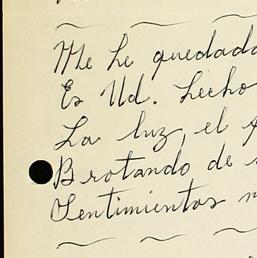 Me he quedado
Es Ud. hecho
La luz, el
Brotando de
Sentimientos